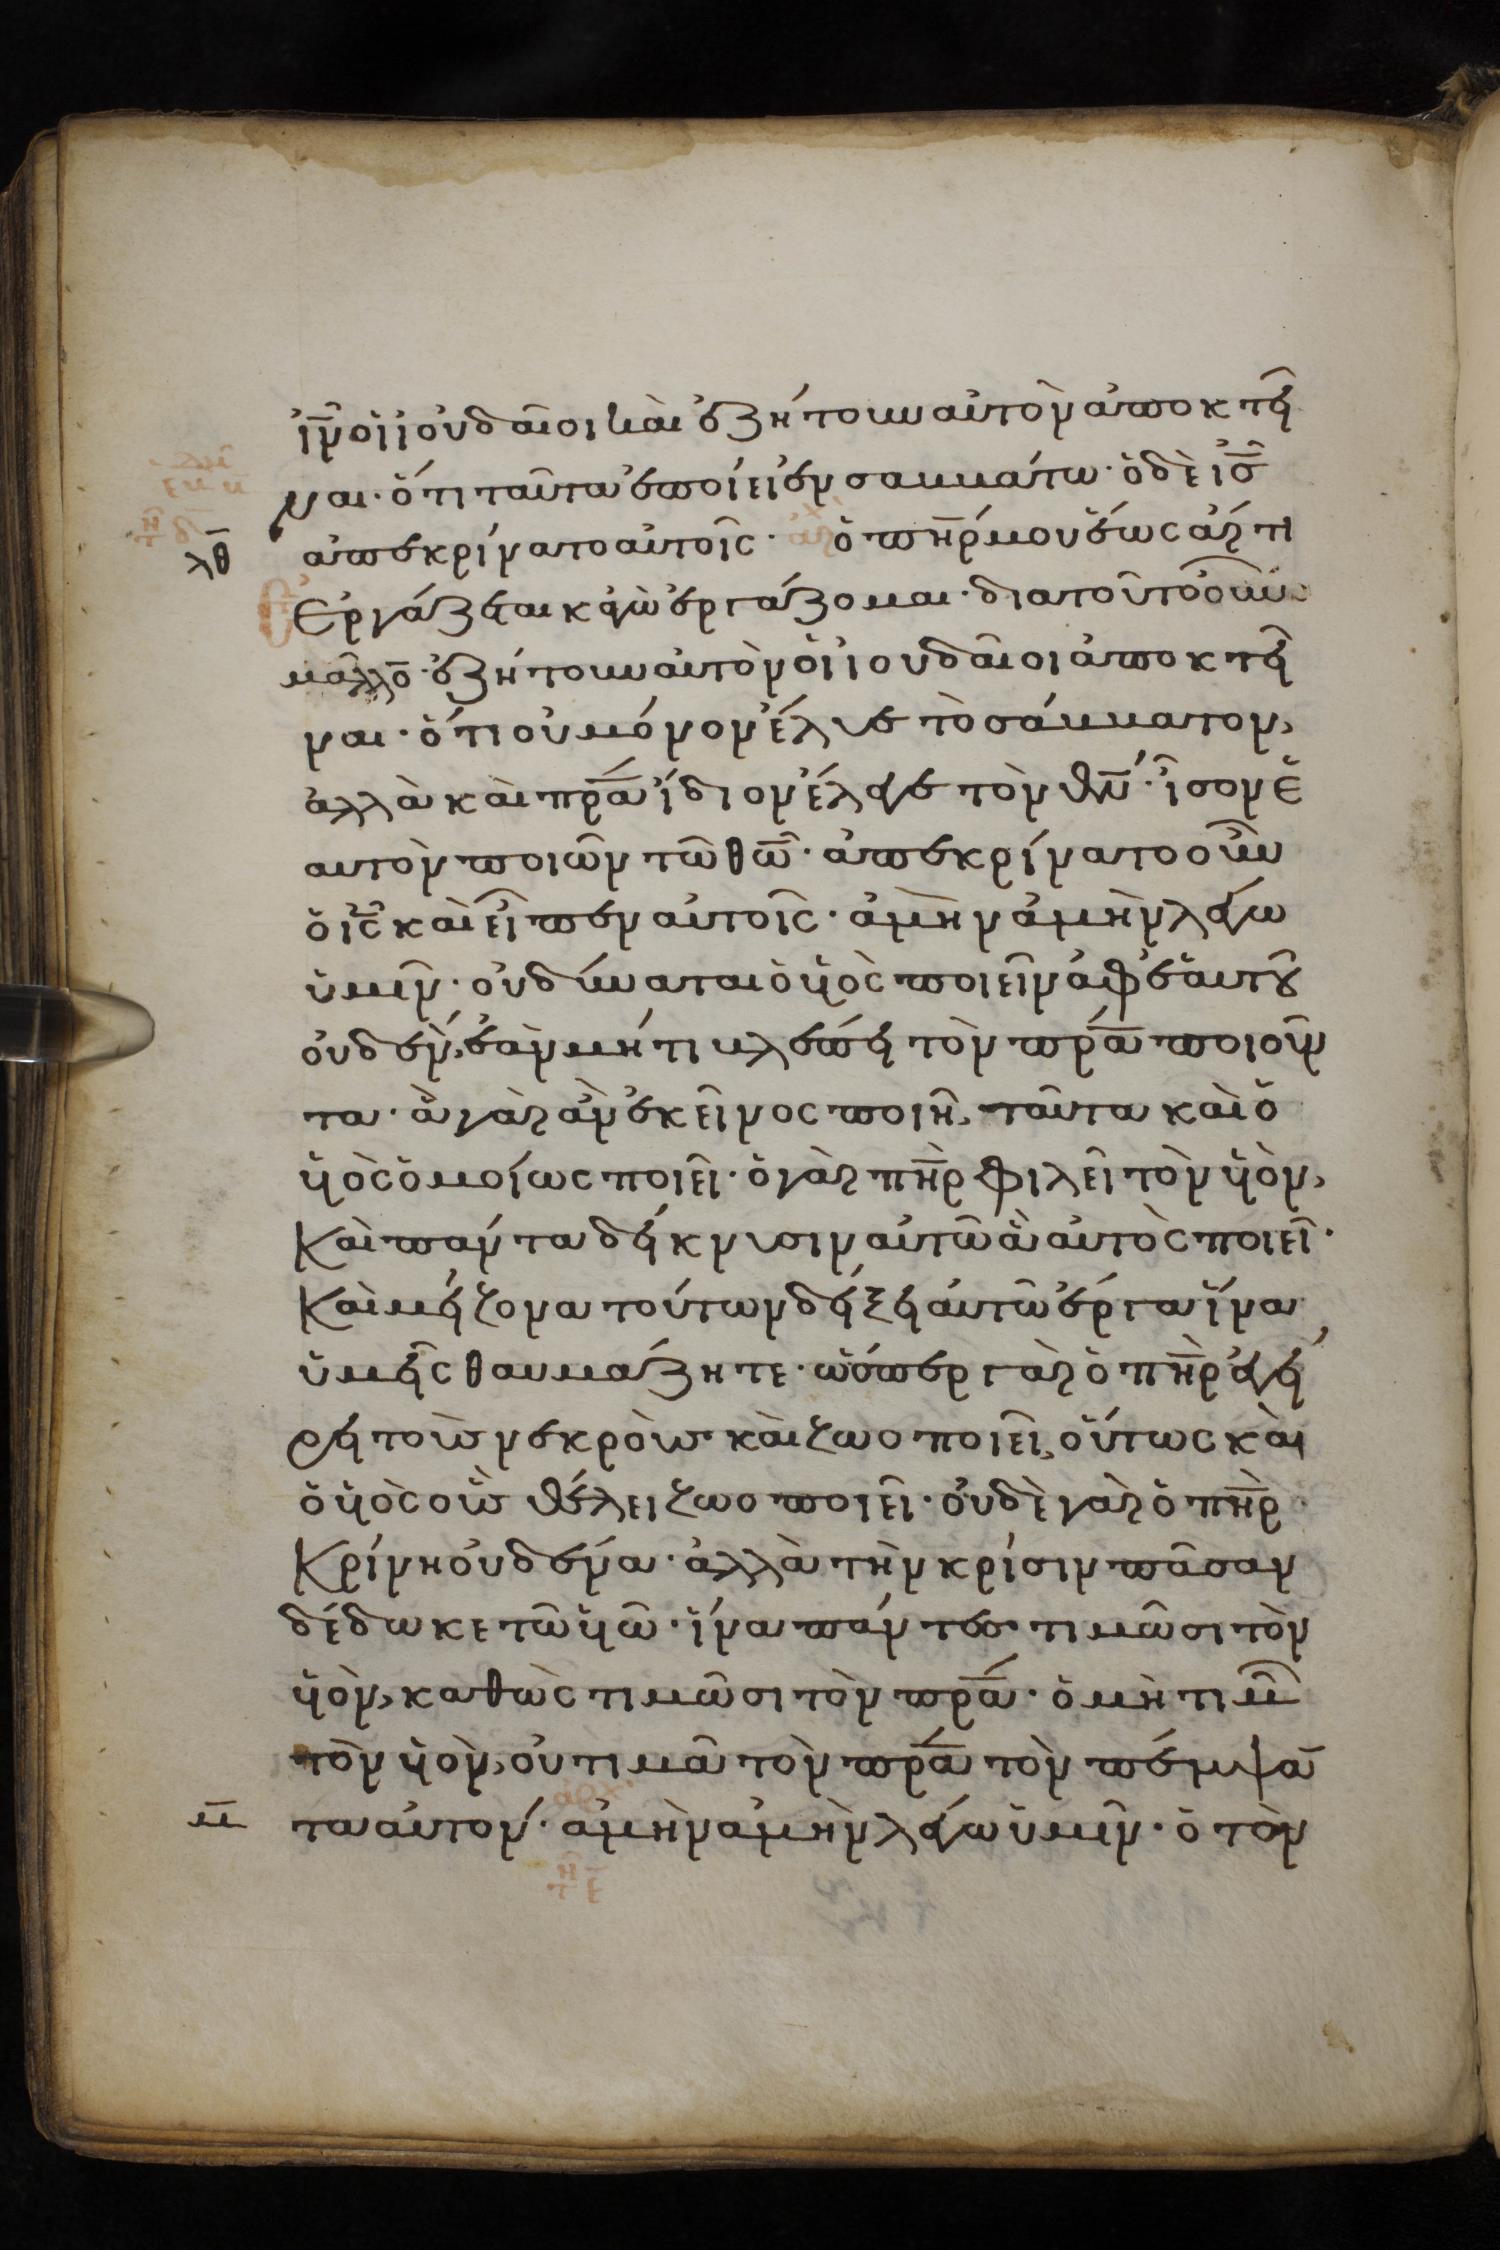 ι̅ν̅ οἱ ἰουδαῖοι καὶ ἐζήτουν αὐτὸν ἀποκτεῖ
ναι· ὅτι ταῦτα ἐποίει ἐν σαββάτω· ὁ δὲ ι̅ς̅
λ̅θ̅ ἀπεκρίνατο αὐτοῖς· ὁ π̅η̅ρ̅ μου ἕως ἄρτι
ἐργάζεται κἀγὼ ἐργάζομαι· διατοῦτο οὖν
μᾶλλο̅ ἐζήτουν αὐτὸν οἱ ἰουδαῖοι ἀποκτεῖ
ναι· ὅτι οὐ μόνον ἔλυε τὸ σάββατον,
ἀλλὰ καὶ π̅ρ̅α̅ ἴδιον ἔλεγε τὸν θ̅ν̅· ἶσον ἑ
αυτὸν ποιῶν τῶ θ̅ω̅· ἀπεκρίνατο οὖν
ὁ ι̅ς̅ καὶ εἶπεν αὐτοῖς· ἀμὴν ἀμὴν λέγω
ὑμῖν· οὐ δύναται ὁ υἱὸς ποιεῖν ἀφ ἑαυτοῦ
οὐδέν, ἐὰν μή τι βλέπει τὸν π̅ρ̅α̅ ποιοῦν
τα· ἃ γὰρ ἂν ἐκεῖνος ποιῆ, ταῦτα καὶ ὁ
υἱὸς ὁμοίως ποιεῖ· ὁ γὰρ π̅η̅ρ̅ φιλεῖ τὸν υἱὸν,
καὶ πάντα δείκνυσιν αὐτῶ ἃ αὐτὸς ποιεῖ·
καὶ μείζονα τούτων δείξει αὐτῶ ἔργα ἵνα
ὑμεῖς θαυμάζητε· ὥσπερ γὰρ ὁ π̅η̅ρ̅ ἐγεί
ρει τοὺς νεκροὺς καὶ ζωοποιεῖ, οὕτως καὶ
ὁ υἱὸς οὓς θέλει ζωοποιεῖ· οὐδὲ γὰρ ὁ π̅η̅ρ̅
κρίνη οὐδένα· ἀλλὰ τὴν κρίσιν πᾶσαν
δέδωκε τῶ υἱῶ· ἵνα πάντες τιμῶσι τὸν
υἱὸν, καθὼς τιμῶσι τὸν π̅ρ̅α̅· ὁ μὴ τιμῶ̅
τὸν υἱὸν, οὐ τιμᾶ τὸν π̅ρ̅α̅ τὸν πέμψα̅
μ̅ τα αὐτόν· ἀμὴν ἀμὴν λέγω ὑμῖν· ὁ τὸν